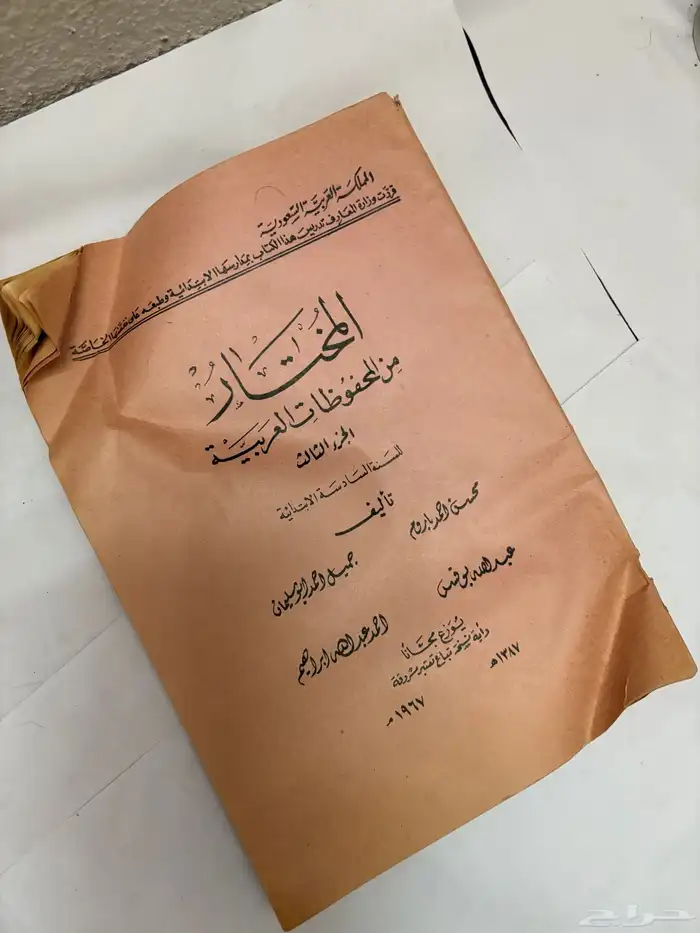 المملكة العربية السعودية
قررت وزارة المعارف تدريس هذا الكتاب بمدارسها الابتدائية وطبعه على نفقتها الخاصة
المختار
من المحفوظات العربية
الجزء الثالث
للسنة السادسة الابتدائية
تأليف
محسن احمد باروم
جميل احمد ابوسليمان
عبد الله بوقس
احمد عبد الله ابراهيم
يوزع مجانا
وأية نسخة تباع تعتبر مسروقة
١٣٨٧ هـ
١٩٦٧ م
حراج